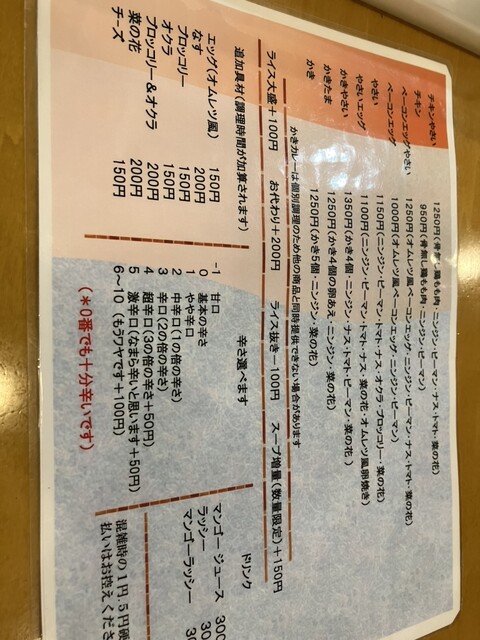 チキンやさい 1250円(骨無し鶏もも肉・ニンジン・ピーマン・ナス・トマト・菜の花)
チキン 950円(骨無し鶏もも肉・ニンジン・ピーマン)
ベーコンエッグやさい 1250円(オムレツ風ベーコンエッグ・ニンジン・ピーマン・ナス・トマト・菜の花)
ベーコンエッグ 1000円(オムレツ風ベーコンエッグ・ニンジン・ピーマン)
やさい 1150円(ニンジン・ピーマン・トマト・ナス・オクラ・ブロッコリー・菜の花)
やさいエッグ 1100円(ニンジン・ピーマン・トマト・ナス・菜の花・オムレツ風卵焼き)
かきやさい 1350円(かき4個・ニンジン・ナス・トマト・ピーマン・菜の花)
かきたま 1250円(かき4個の卵あえ・ニンジン・菜の花)
かき 1250円(かき5個・ニンジン・菜の花)
かきカレーは個別調理のため他の商品と同時提供できない場合があります
ライス大盛+100円 お代わり+200円 ライス抜き-100円 スープ増量(数量限定)+150円
追加具材(調理時間が加算されます)
エッグ(オムレツ風) 150円
なす 200円
ブロッコリー 150円
オクラ 150円
ブロッコリー&オクラ 200円
菜の花 200円
チーズ 150円
辛さ選べます
-1 甘口
0 基本の辛さ
1 やや辛口
2 中辛口(1の倍の辛さ)
3 辛口(2の倍の辛さ)
4 超辛口(3の倍の辛さ+50円)
5 激辛口(なまら辛いと思います+50円)
6~10(もうワヤです+100円)
(*0番でも十分辛いです)
ドリンク
マンゴージュース 300
ラッシー 30
マンゴーラッシー 30
混雑時の1円,5円硬
払いはお控えくださ